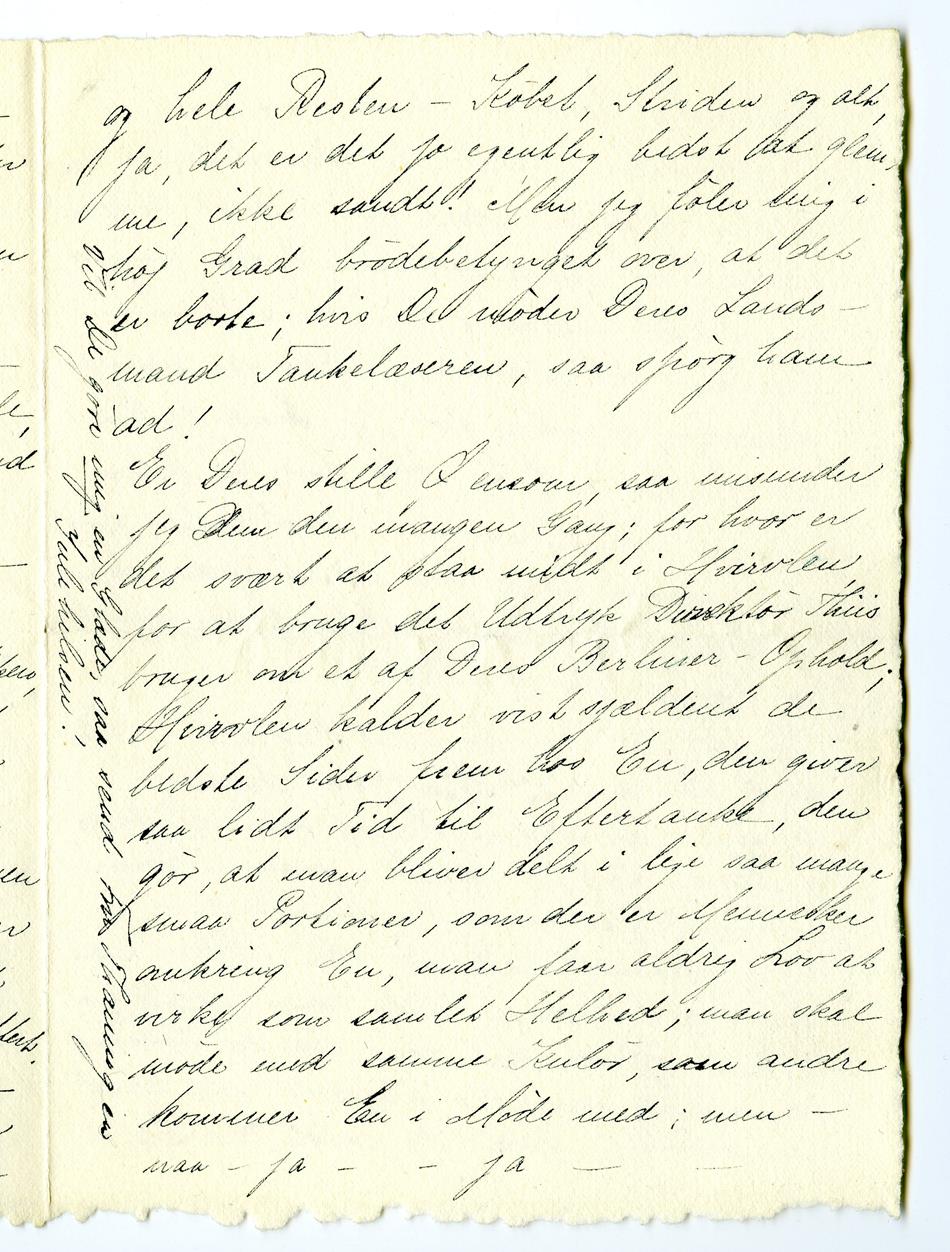 og hele Resten – Købet, Striden og alt,
ja, det er det jo egentlig bedst at glem,
me, ikke sandt! Men jeg føler mig i
høj Grad brødebetynget over, at det
er borte; hvis De møder Deres Lands-
mand Tankelæseren, saa spørg ham
ad!
Er Deres stille Ø ensom, saa misunder
jeg Dem den mangen Gang; for hvor er
det svært at staa midt i Hvirvlen,
for at bruge det Udtryk Direktør Thiis
bruger om et af Deres Berliner-Ophold;
Hvirvlen kalder vist sjældent de
bedste Sider frem hos En, den giver
saa lidt Tid til Eftertanke, den
gør, at man bliver delt i lige saa mange
smaa Portioner, som der er Mennesker
omkring En, man faar aldrig Lov at
virke som samlet Helhed; man skal
møde med samme Kulør, som andre
kommer En i Møde med; men –
naa – ja – – ja –
Vil De gøre mig en Glæde, saa send en
Julehilsen!